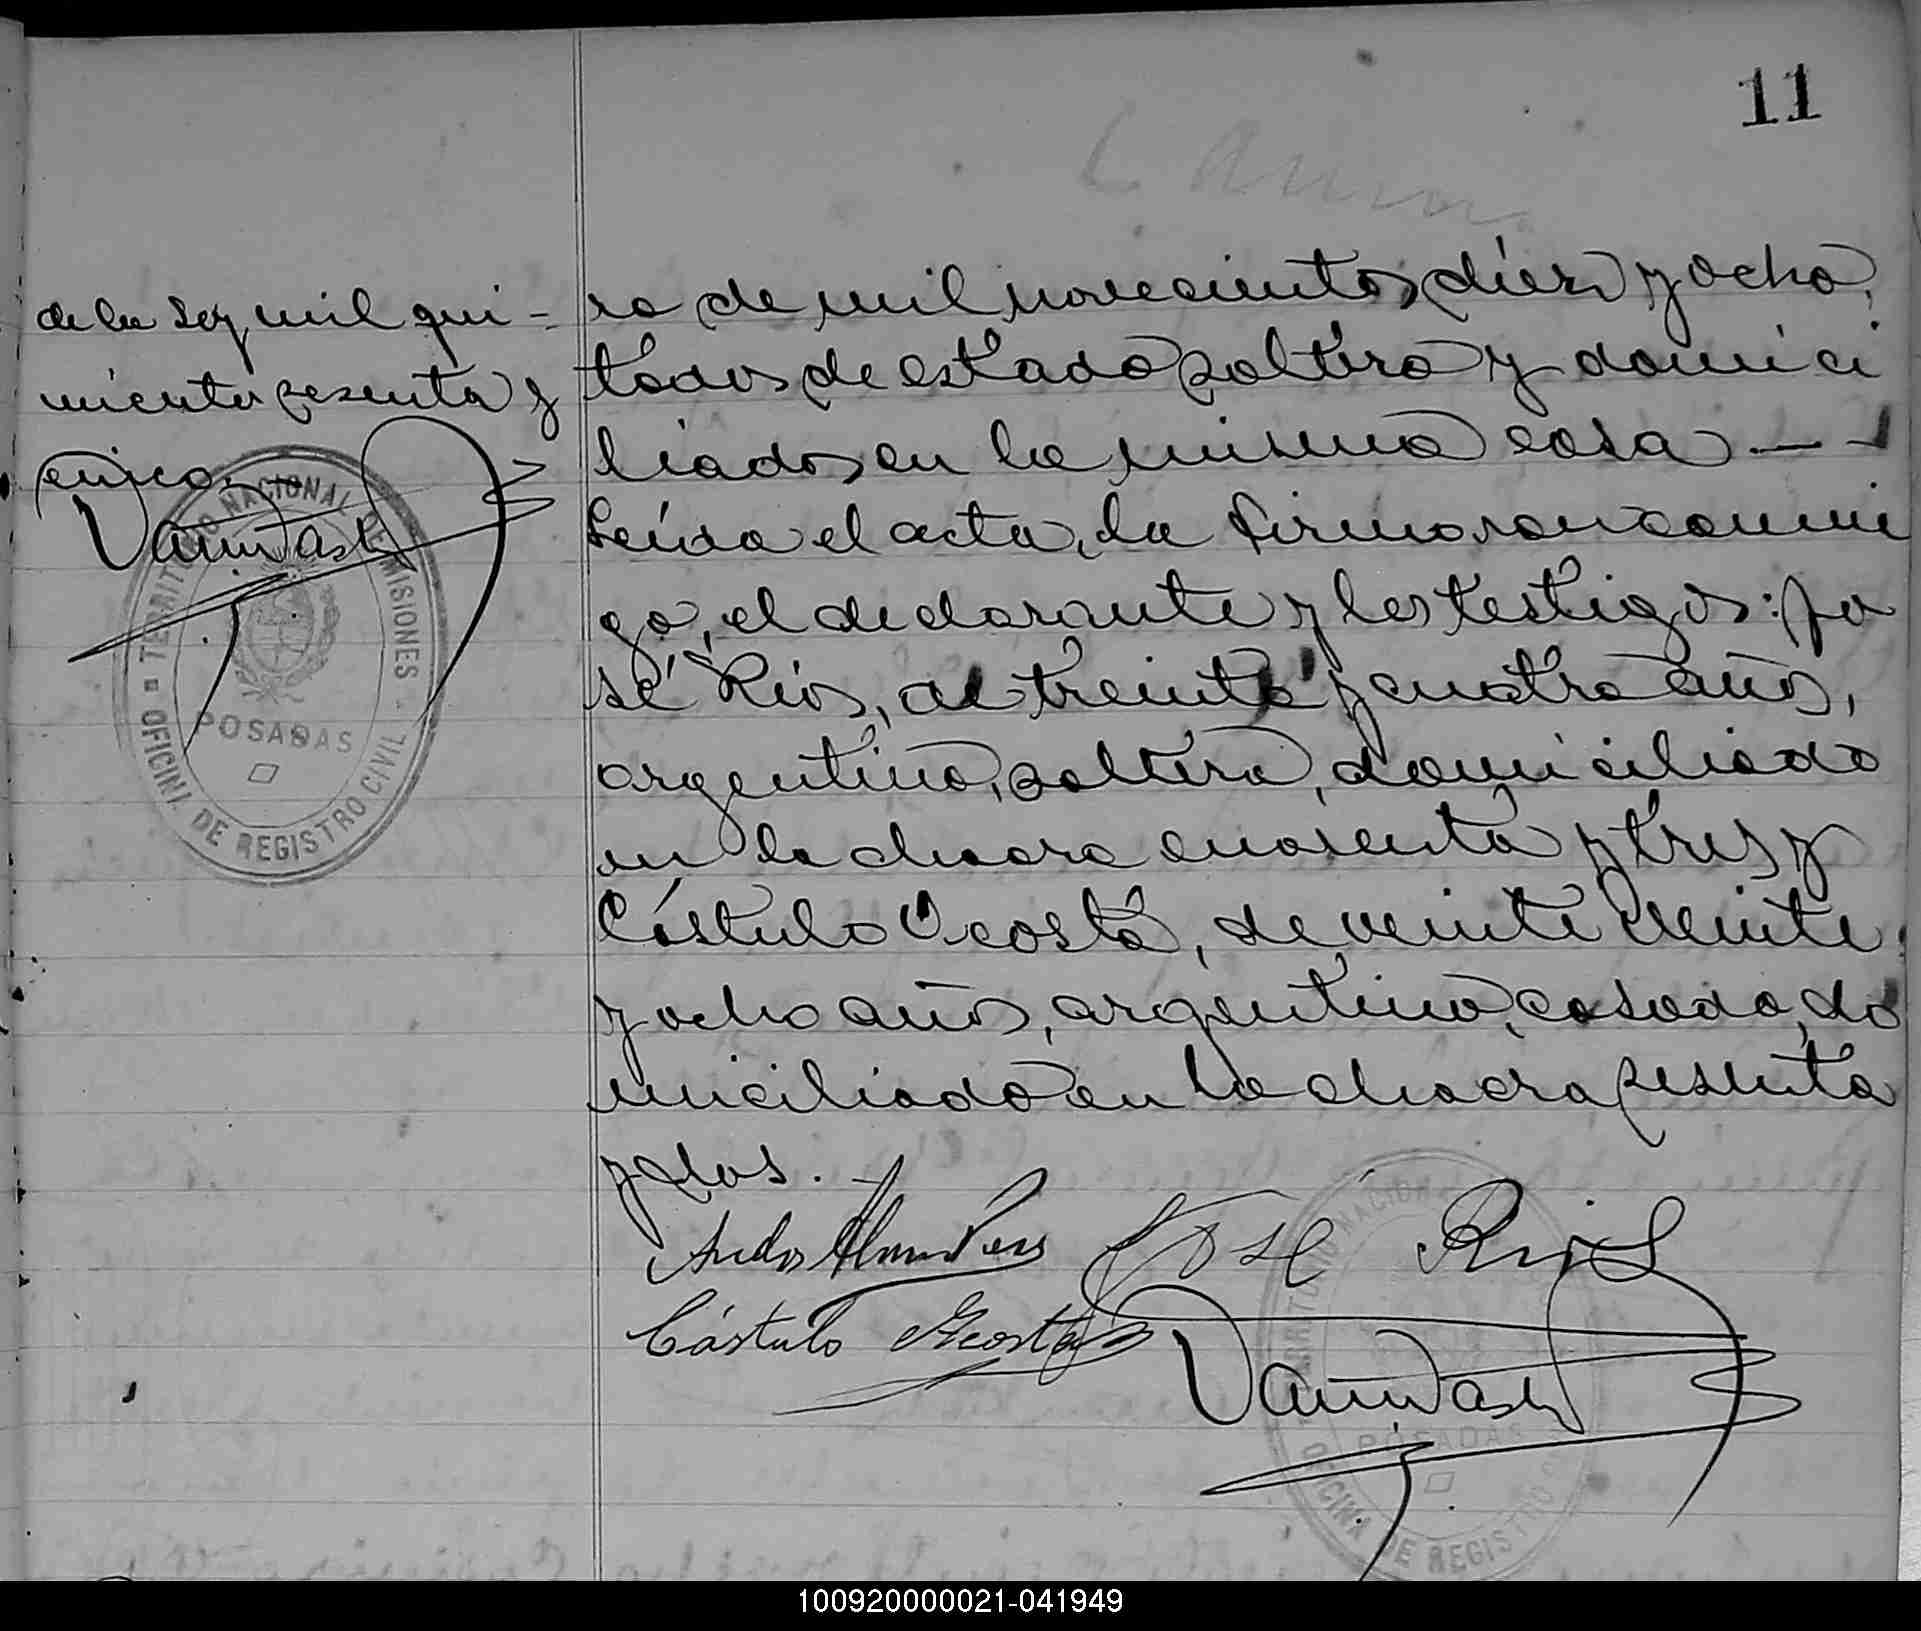 11
de la ley mil qui-
nientos sesenta y
cinco.
TERRITORIO NACIONAL DE MISIONES
POSADAS
OFICINA DE REGISTRO CIVIL
ro de mil novecientos diez y ocho,
todos de estado soltero y domici
liados en la misma casa —
Leida el acta, la firmaron conmi
go, el declarante y los testigos: Jo
sé Rios, de treinta y cuatro años,
argentino, soltero, domiciliado
en la chacra cuarenta y tres y
Cástulo Acosta, de veinte veinte
y ocho años, argentino, casado, do
miciliado en la chacra sesenta
y dos.
José Rios
Cástulo Acosta
TERRITORIO NACIONAL
POSADAS
OFICINA DE REGISTRO
100920000021-041949